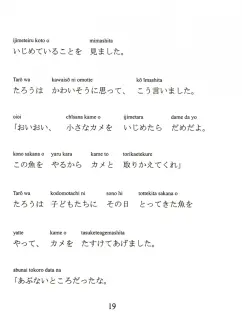 ijimeteiru koto o mimashita
いじめていることを 見ました。
Tarō wa kawaisō ni omotte kō iimashita
たろうは かわいそうに思って、 こう言いました。
oioi chiisana kame o ijimetara dame da yo
「おいおい、 小さなカメを いじめたら だめだよ。
kono sakana o yaru kara kame to torikaetekure
この魚を やるから カメと 取りかえてくれ」
Tarō wa kodomotachi ni sono hi tottekita sakana o
たろうは 子どもたちに その日 とってきた魚を
yatte kame o tasuketeagemashita
やって、 カメを たすけてあげました。
abunai tokoro data na
「あぶないところだったな。
19